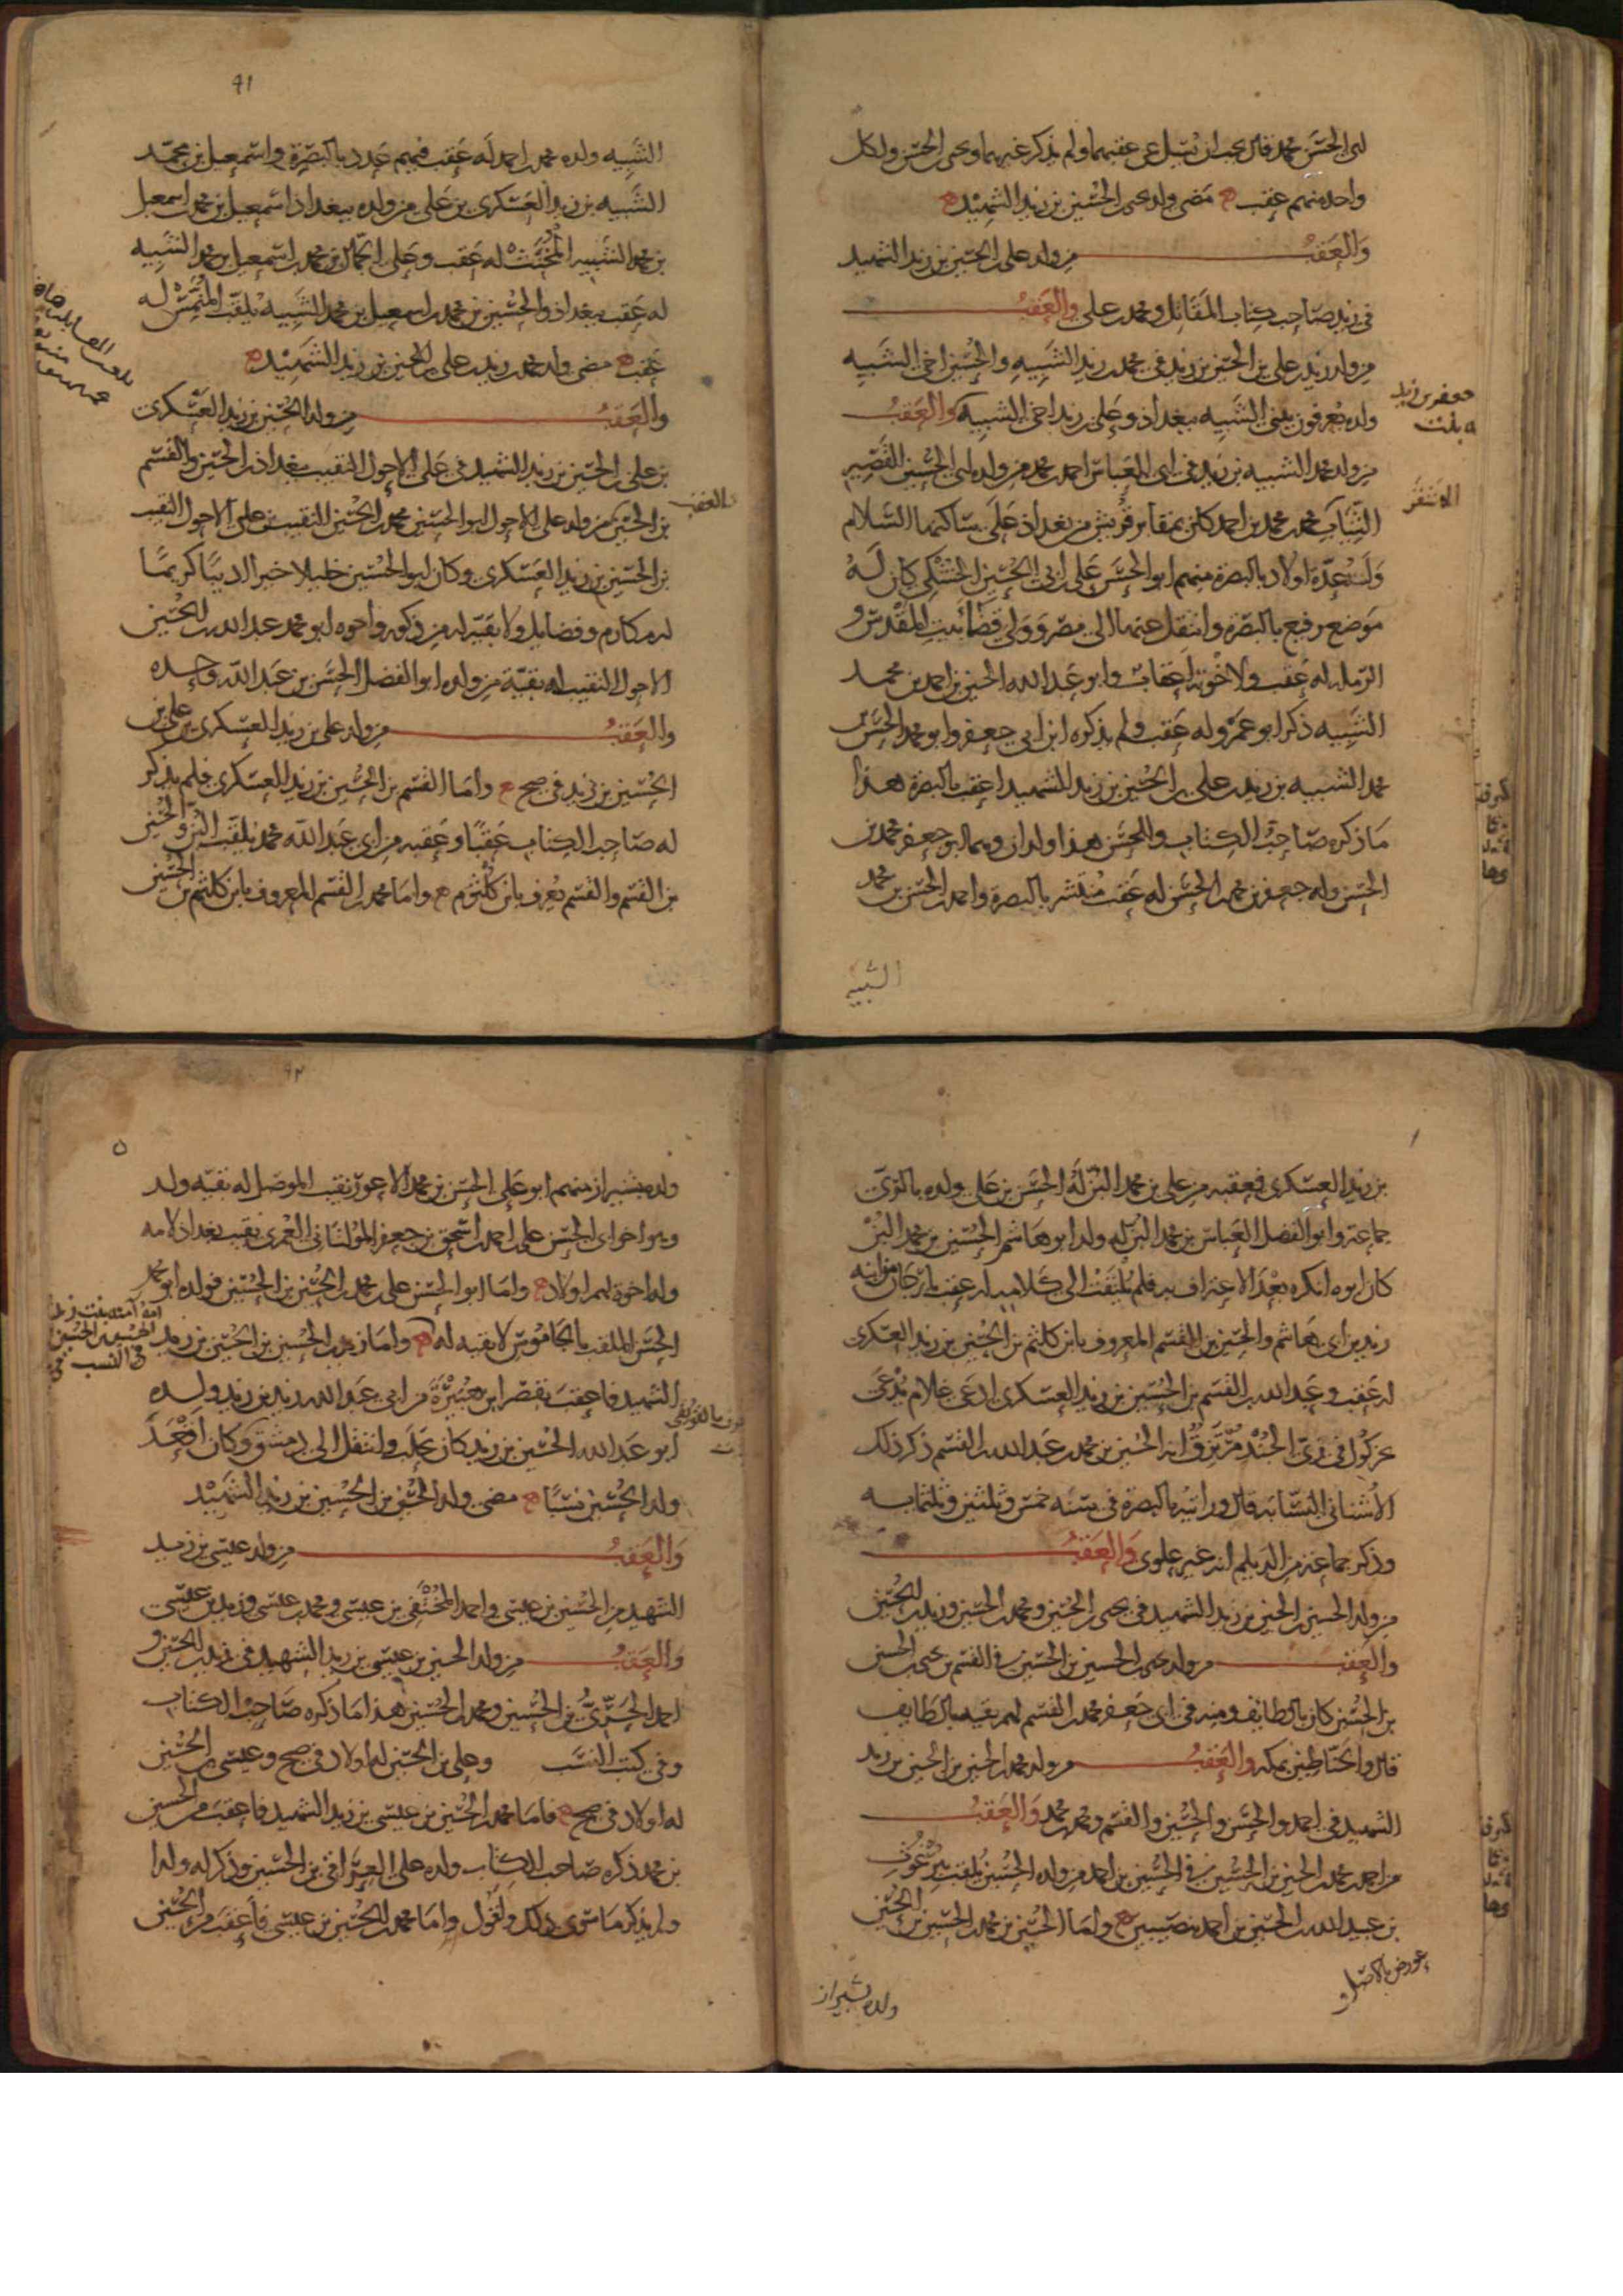 ابى الحسن محمد قال يجب ان يسل عن عقبهما ولم يذكر غيرهما ويحيى الحسن ولكل
واحد منهم عقب مضى ولد يحيى بن الحسين بن زيد الشهيد
والعقب من ولد على بن الحسين بن زيد الشهيد
فى زيد صاحب كتاب المقاتل ومحمد بن على والعقب
من ولد زيد بن على بن الحسين بن زيد فى محمد بن زيد الشبيه والحسين اخى الشبيه
جعفر بن زيد
ولده يعرفون ببنى الشبيه ببغداذ وعلى بن زيد اخى الشبيه والعقب
من ولد محمد الشبيه بن زيد فى ابى العباس احمد بن محمد من ولده ابى الحسين القصير
النساب محمد بن محمد بن احمد كان بمقابر قريش من بغداذ على ساكنها السلام
وله عدة اولاد بالبصرة منهم ابو الحسن على بن ابى الحسين كان له
موضع رفيع بالبصرة وانتقل عنها الى مصر وولى قضا بيت المقدس و
الرملة له عقب ولاخوته اعقاب وابو عبد الله الحسين بن احمد بن محمد
الشبيه ذكر ابو عمرو له عقب ولم يذكره ابن ابى جعفر وابو محمد الحسن بن
محمد الشبيه بن زيد بن على بن الحسين بن زيد الشهيد اعقب بالبصرة هذا
ما ذكره صاحب الكتاب وللحسن هذا ولدان وهما ابو جعفر محمد بن
الحسن وله جعفر بن محمد بن الحسن له عقب منتشر بالبصرة واحمد بن الحسن بن محمد
الشبيه
٩١
الشبيه ولده محمد بن احمد له عقب فيهم عدد بالبصرة واسمعيل بن محمد
الشبيه بن زيد العسكرى بن على من ولده ببغداذ اسمعيل بن محمد بن اسمعيل
بن محمد الشبيه المخنث له عقب وعلى الحمال بن محمد بن اسمعيل بن محمد الشبيه
له عقب ببغداذ والحسين بن محمد بن اسمعيل بن محمد الشبيه يلقب المتمش له
عقب مضى ولد محمد بن زيد بن على بن الحسين بن زيد الشهيد
والعقب من ولد الحسين بن زيد العسكرى
بن على بن الحسين بن زيد الشهيد فى على الاحول النقيب ببغداذ بن الحسين والقسم
والعقب
بن الحسين من ولد على الاحول ابو الحسين محمد بن الحسين النقيب بن على الاحول النقيب
بن الحسين بن زيد العسكرى وكان ابو الحسين خليلا خيرا ديبا كريما
له مكارم وفضايل ولا بقية له من ذكور واخوه ابو محمد عبد الله بن الحسين
الاحول النقيب له بقية من ولده ابو الفضل الحسن بن عبد الله وحده
والعقب من ولد على بن زيد العسكرى بن على بن
الحسين بن زيد فى صح واما القسم بن الحسين بن زيد العسكرى فلم يذكر
له صاحب الكتاب عقبا وعقبه من ابى عبد الله محمد يلقب البز والحسين
بن القسم والقسم يعرف بابن كلثوم واما محمد بن القسم المعروف بابن كلثم بن الحسين
بن زيد العسكرى فعقبه من على بن محمد البز له الحسن بن على ولده بالرى
جماعة وابو الفضل العباس بن محمد البز له ولد ابو هاشم الحسين بن محمد البز
كان ابوه انكره بعد الاعتراف به فلم يلتفت الى كلامه له عقب بارجان من ابنه
زيد بن ابى هاشم والحسين بن القسم المعروف بابن كلثم بن الحسين بن زيد العسكرى
له عقب وعبد الله بن القسم بن الحسين بن زيد العسكرى ادعى غلام يدعى
فى زى الجند مرتزق انه الحسين بن محمد بن عبد الله بن القسم ذكر ذلك
الاشنانى النسابة قال ورايته بالبصرة فى سنة خمس وثلثين وثلثماية
وذكر جماعة من الديلم انه غير علوى والعقب
من ولد الحسين بن الحسين بن زيد الشهيد فى يحيى بن الحسين ومحمد بن الحسين وزيد بن الحسين
والعقب من ولد يحيى بن الحسين بن الحسين فى القسم بن يحيى بن الحسين
بن الحسين كان بالطايف ومنه فى ابى جعفر محمد بن القسم لهم بقية بالطايف
قال والحناطين بمكة والعقب من ولد محمد بن الحسين بن الحسين بن زيد
الشهيد فى احمد والحسن والحسين والقسم ومحمد بن محمد والعقب
من احمد بن محمد بن الحسين بن الحسين فى الحسين بن احمد من ولده الحسين يلقب ببرغوث
بن عبيد الله بن الحسين بن احمد بنصيبين واما الحسين بن محمد بن الحسين بن الحسين
عورض بالاصل
ولده بشيراز
٩٢
ولده بشيراز منهم ابو على الحسن بن محمد الاعور نقيب الموصل له بقية ولد
وهو اخو ابى الحسن على بن احمد بن اسحق بن جعفر المولتانى العمرى نقيب بغداذ لامه
وله اخوة لهم اولاد واما ابو الحسن على بن محمد بن الحسين بن الحسين فولده ابو محمد
الحسن الملقب بالجاموس لا بقية له واما زيد بن الحسين بن الحسين بن زيد
امه آمنة بنت زيد
الشهيد فاعقب بقصر ابن هبيرة من ابى عبد الله زيد بن زيد ولده
ابو عبد الله الحسين بن زيد كان بحلب وانتقل الى دمشق وكان اقعد
ولد الحسين نسبا مضى ولد الحسين بن الحسين بن زيد الشهيد
والعقب من ولد عيسى بن زيد
الشهيد من الحسين بن عيسى واحمد المختفى بن عيسى ومحمد بن عيسى وزيد بن عيسى
والعقب من ولد الحسين بن عيسى بن زيد الشهيد فى زيد بن الحسين و
احمد الحرى بن الحسين ومحمد بن الحسين هذا ما ذكره صاحب الكتاب
وفى كتب النسب وعلى بن الحسين له اولاد فى صح وعيسى بن الحسين
له اولاد فى صح فاما محمد بن الحسين بن عيسى بن زيد الشهيد فاعقب من الحسين
بن محمد ذكره صاحب الكتاب ولده على العراقى بن الحسين وذكر له ولدا
ولم يذكر ما سوى ذلك ونقول واما محمد بن الحسين بن عيسى فاعقب من الحسين